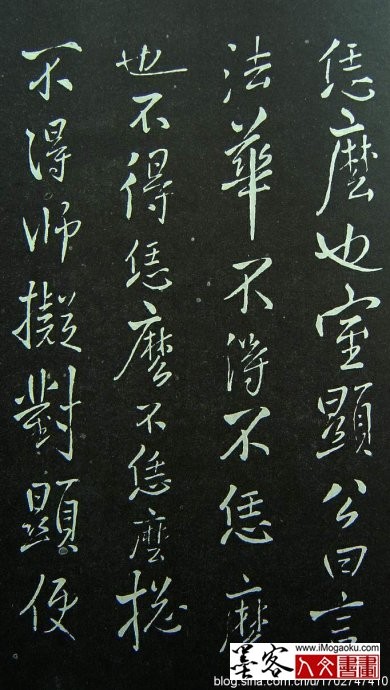 恁麼也室顯公曰言
法華不得不恁麼
也不得恁麼不恁麼捴
不得師擬對顯便
www.iMogaoku.com
墨客
人文書畫